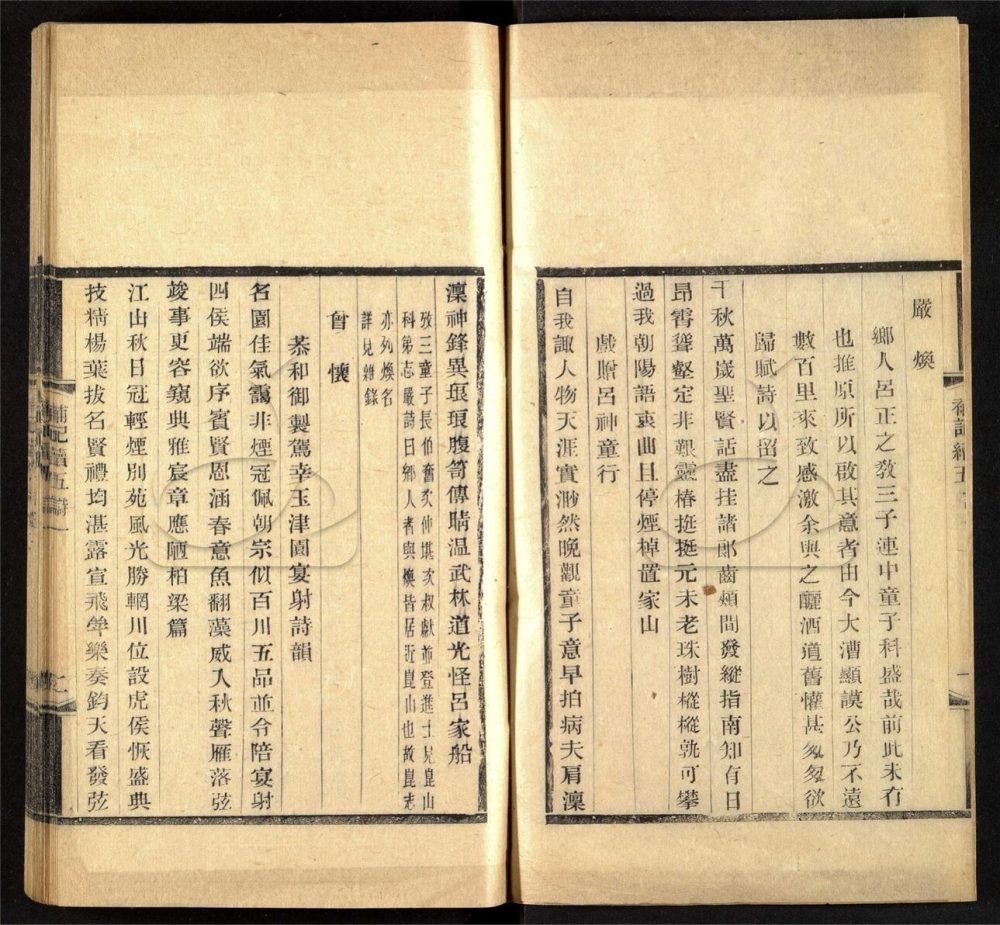 嚴煥
鄉人呂正之敎三子連中童子科盛哉前此未有
也推原所以啟其意者由今大漕顯謨公乃不遠
數百里來致感激余與之釃酒道舊懽甚匆匆欲
歸賦詩以留之
千秋萬歲聖賢話盡挂諸郎齒頰間發縱指南知有日
昂霄聳壑定非艱靈椿挺挺元未老珠樹樅樅孰可攀
過我朝陽語衷曲且停煙棹置家山
戲贈呂神童行
自我諏人物天涯實渺然晚觀童子意早拍病夫肩凜
凜神鋒異琅琅腹笥傳晴温武林道光怪呂家船
攷三童子長伯奮次仲堪次叔獻並登進士見崑山
科第志嚴詩曰鄉人者與煥皆居近崑山也故崑志
亦列煥名
詳見雜錄
曾懷
恭和御製駕幸玉津園宴射詩韻
名園佳氣靄非煙冠佩朝宗似百川五品並令陪宴射
四侯端欲序賓賢恩涵春意魚翻藻威入秋聲雁落弦
竣事更容窺典雅宸章應陋柏梁篇
江山秋日冠輕煙別苑風光勝輞川位設虎侯恢盛典
技精楊葉拔名賢禮均湛露宣飛斝樂奏鈞天看發弦
補記續五 詩 一
二